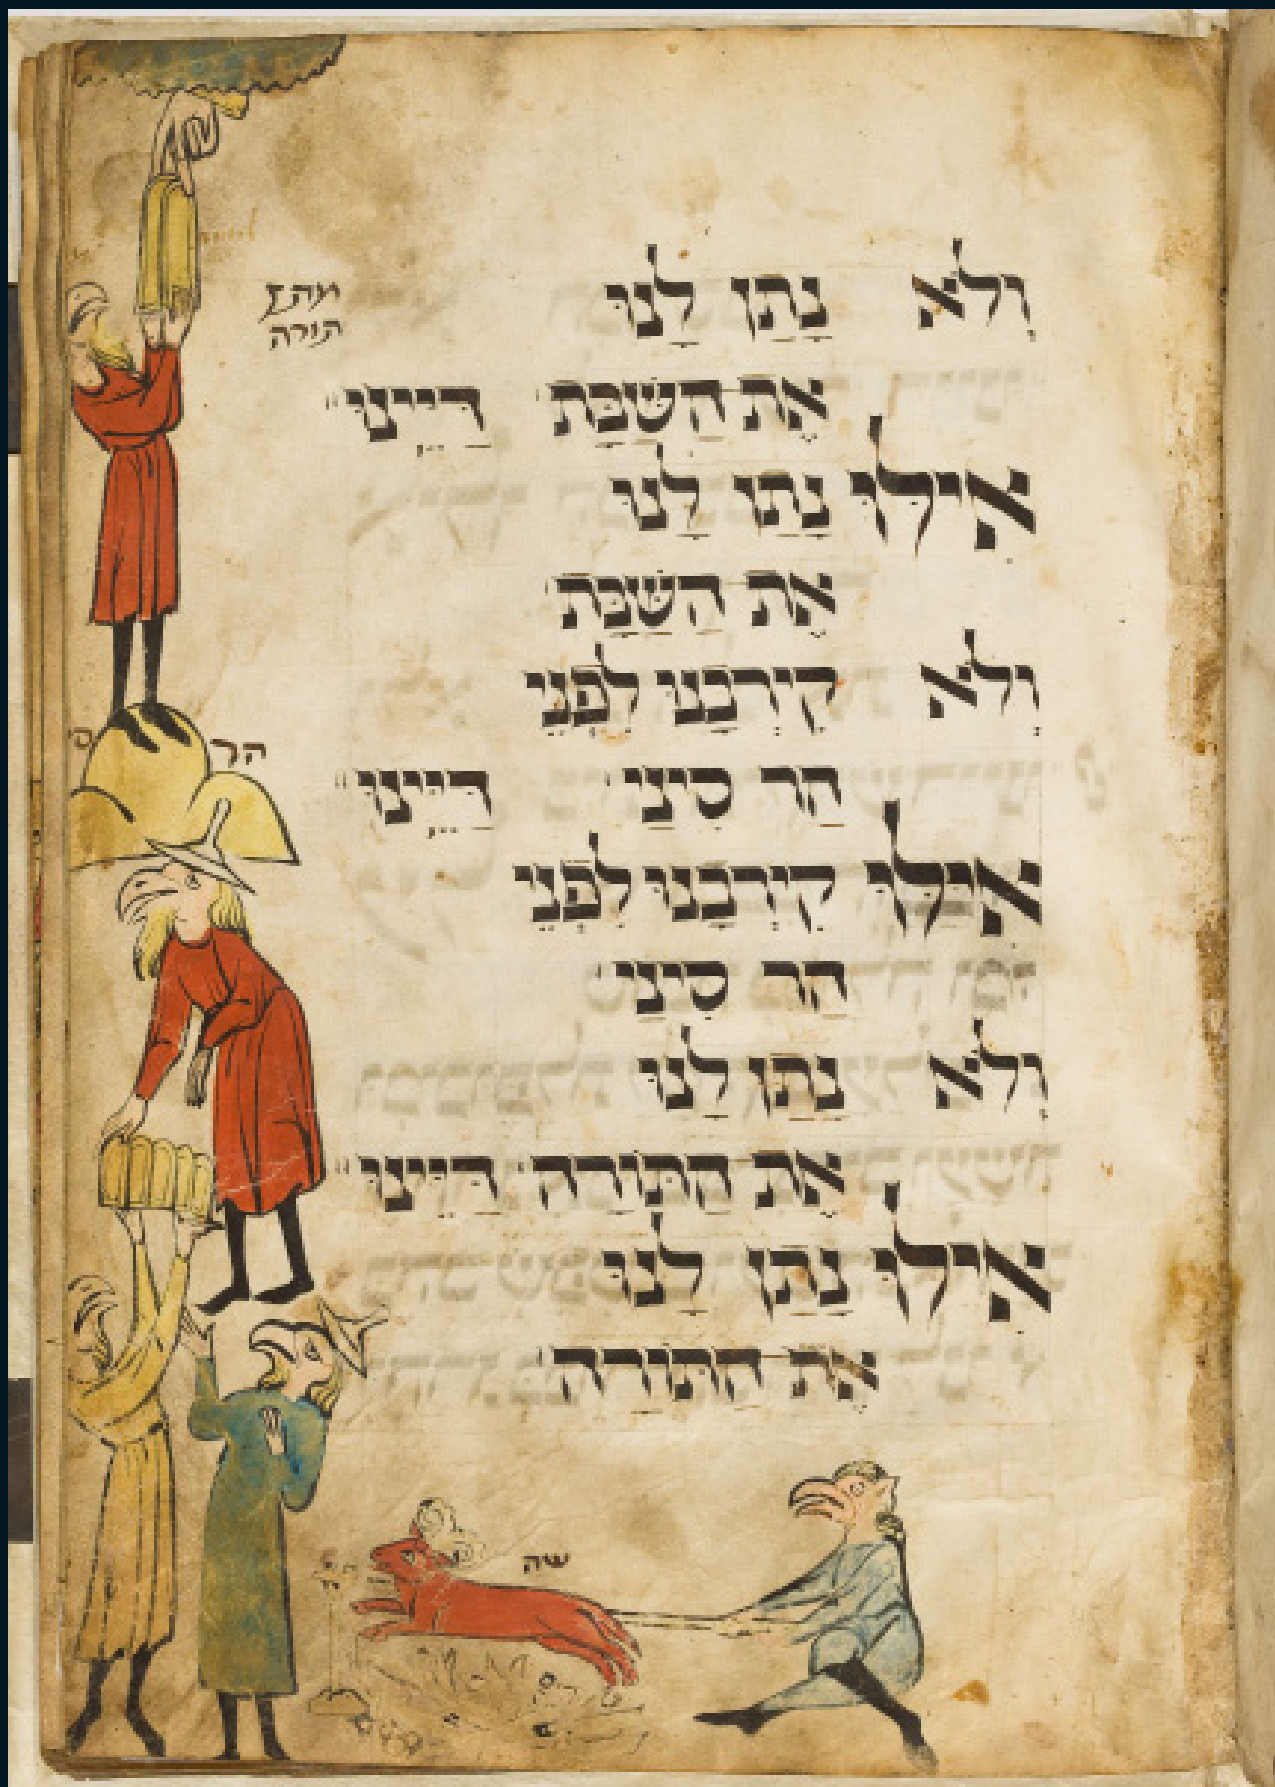 וְלֹא נָתַן לָנוּ
אֶת הַשַּׁבָּת דַּיֵּינוּ
אִילוּ נָתַן לָנוּ
אֶת הַשַּׁבָּת
וְלֹא קֵירְבָנוּ לִפְנֵי
הַר סִינַי דַּיֵּינוּ
אִילוּ קֵירְבָנוּ לִפְנֵי
הַר סִינַי
וְלֹא נָתַן לָנוּ
אֶת הַתּוֹרָה דַּיֵּינוּ
אִילוּ נָתַן לָנוּ
אֶת הַתּוֹרָה
תורה
הר
שה